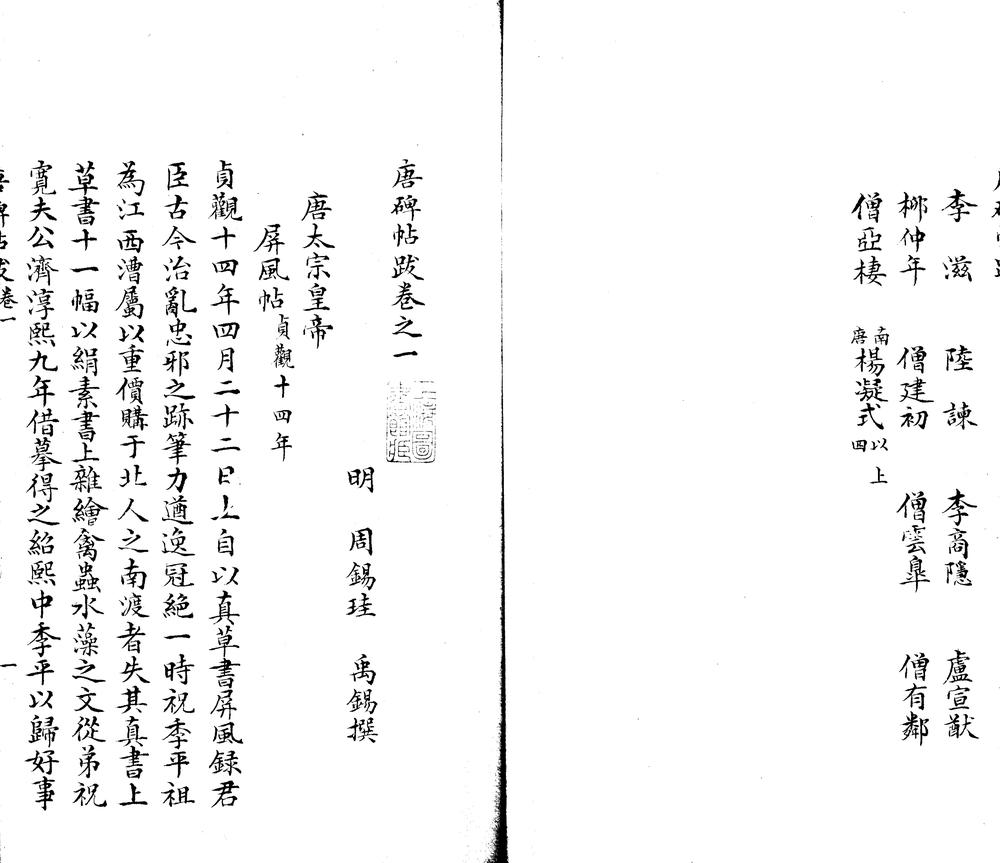 李滋 陸諫 李商隱 盧宣猷
栁仲年 僧建初 僧雲臯 僧有鄰
僧亞棲 南唐楊凝式 以上四
唐碑帖跋卷之一
明 周錫珪 禹錫撰
唐太宗皇帝
屏風帖貞觀十四年
貞觀十四年四月二十二日上自以真草書屏風録君
臣古今治亂忠邪之跡筆力遒逸冠絕一時祝季平祖
為江西漕屬以重價購于北人之南渡者失其真書上
草書十一幅以絹素書上雜繪禽蟲水藻之文從弟祝
寛夫公濟淳熙九年借摹得之紹熙中季平以歸好事
卷一 一